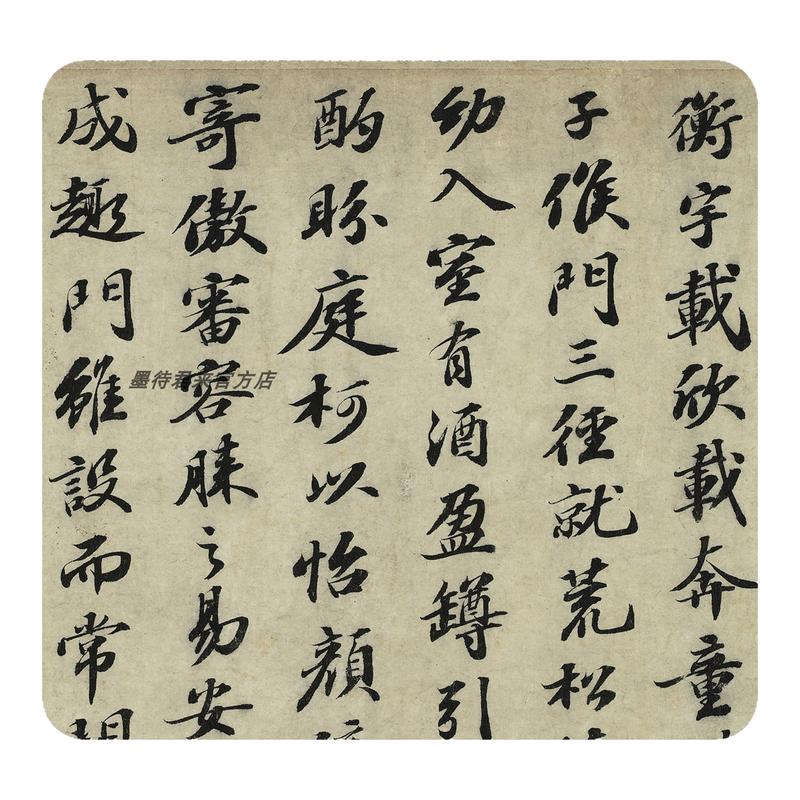 衡宇載欣載奔童
子候門三徑就荒松
幼入室有酒盈罇引
酌盼庭柯以怡顏
寄傲審容膝之易安
成趣門雖設而常
墨待君来官方店